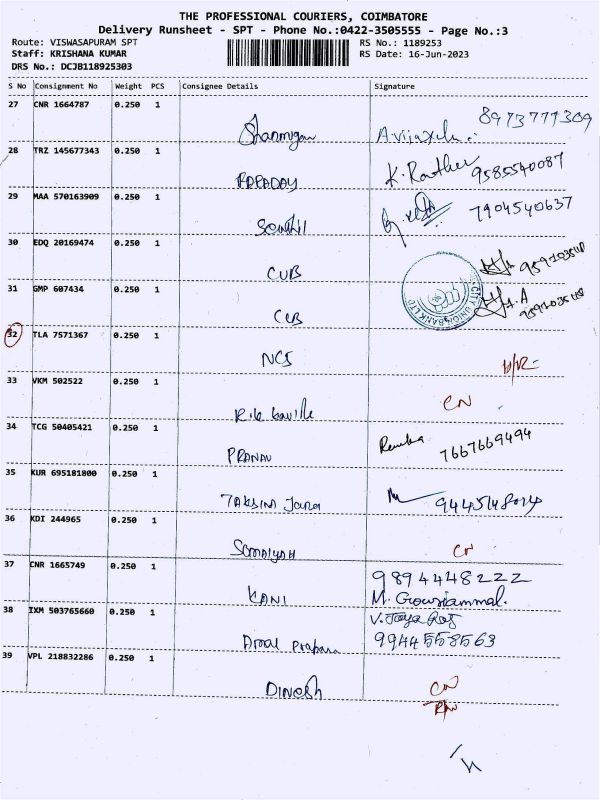 THE PROFESSIONAL COURIERS, COIMBATORE
Delivery Runsheet - SPT - Phone No.:0422-3505555 - Page No.:3
Route: VISWASAPURAM SPT RS No.: 1189253
Staff: KRISHANA KUMAR RS Date: 16-Jun-2023
DRS No.: DCJB118925303
S No Consignment No Weight PCS Consignee Details Signature
27 CNR 1664787 0.250 1
Shanmugam 8973777309
28 TRZ 145677343 0.250 1
FARADAY K. 9585540087
29 MAA 570163909 0.250 1
Senthil 7904540637
30 EDQ 20169474 0.250 1
CUB
31 GMP 607434 0.250 1
CUB CITY UNION BANK LTD
32 TLA 7571367 0.250 1
NCS
33 VKM 502522 0.250 1
CN
34 TCG 50405421 0.250 1
PRANAV 7667669494
35 KUR 695181800 0.250 1
36 KDI 244965 0.250 1
CN
37 CNR 1665749 0.250 1 9894448222
KANI M. Gowriammal.
38 IXM 503765660 0.250 1 V. Jaya Raj
9944558563
39 VPL 218832286 0.250 1
DINESH CN